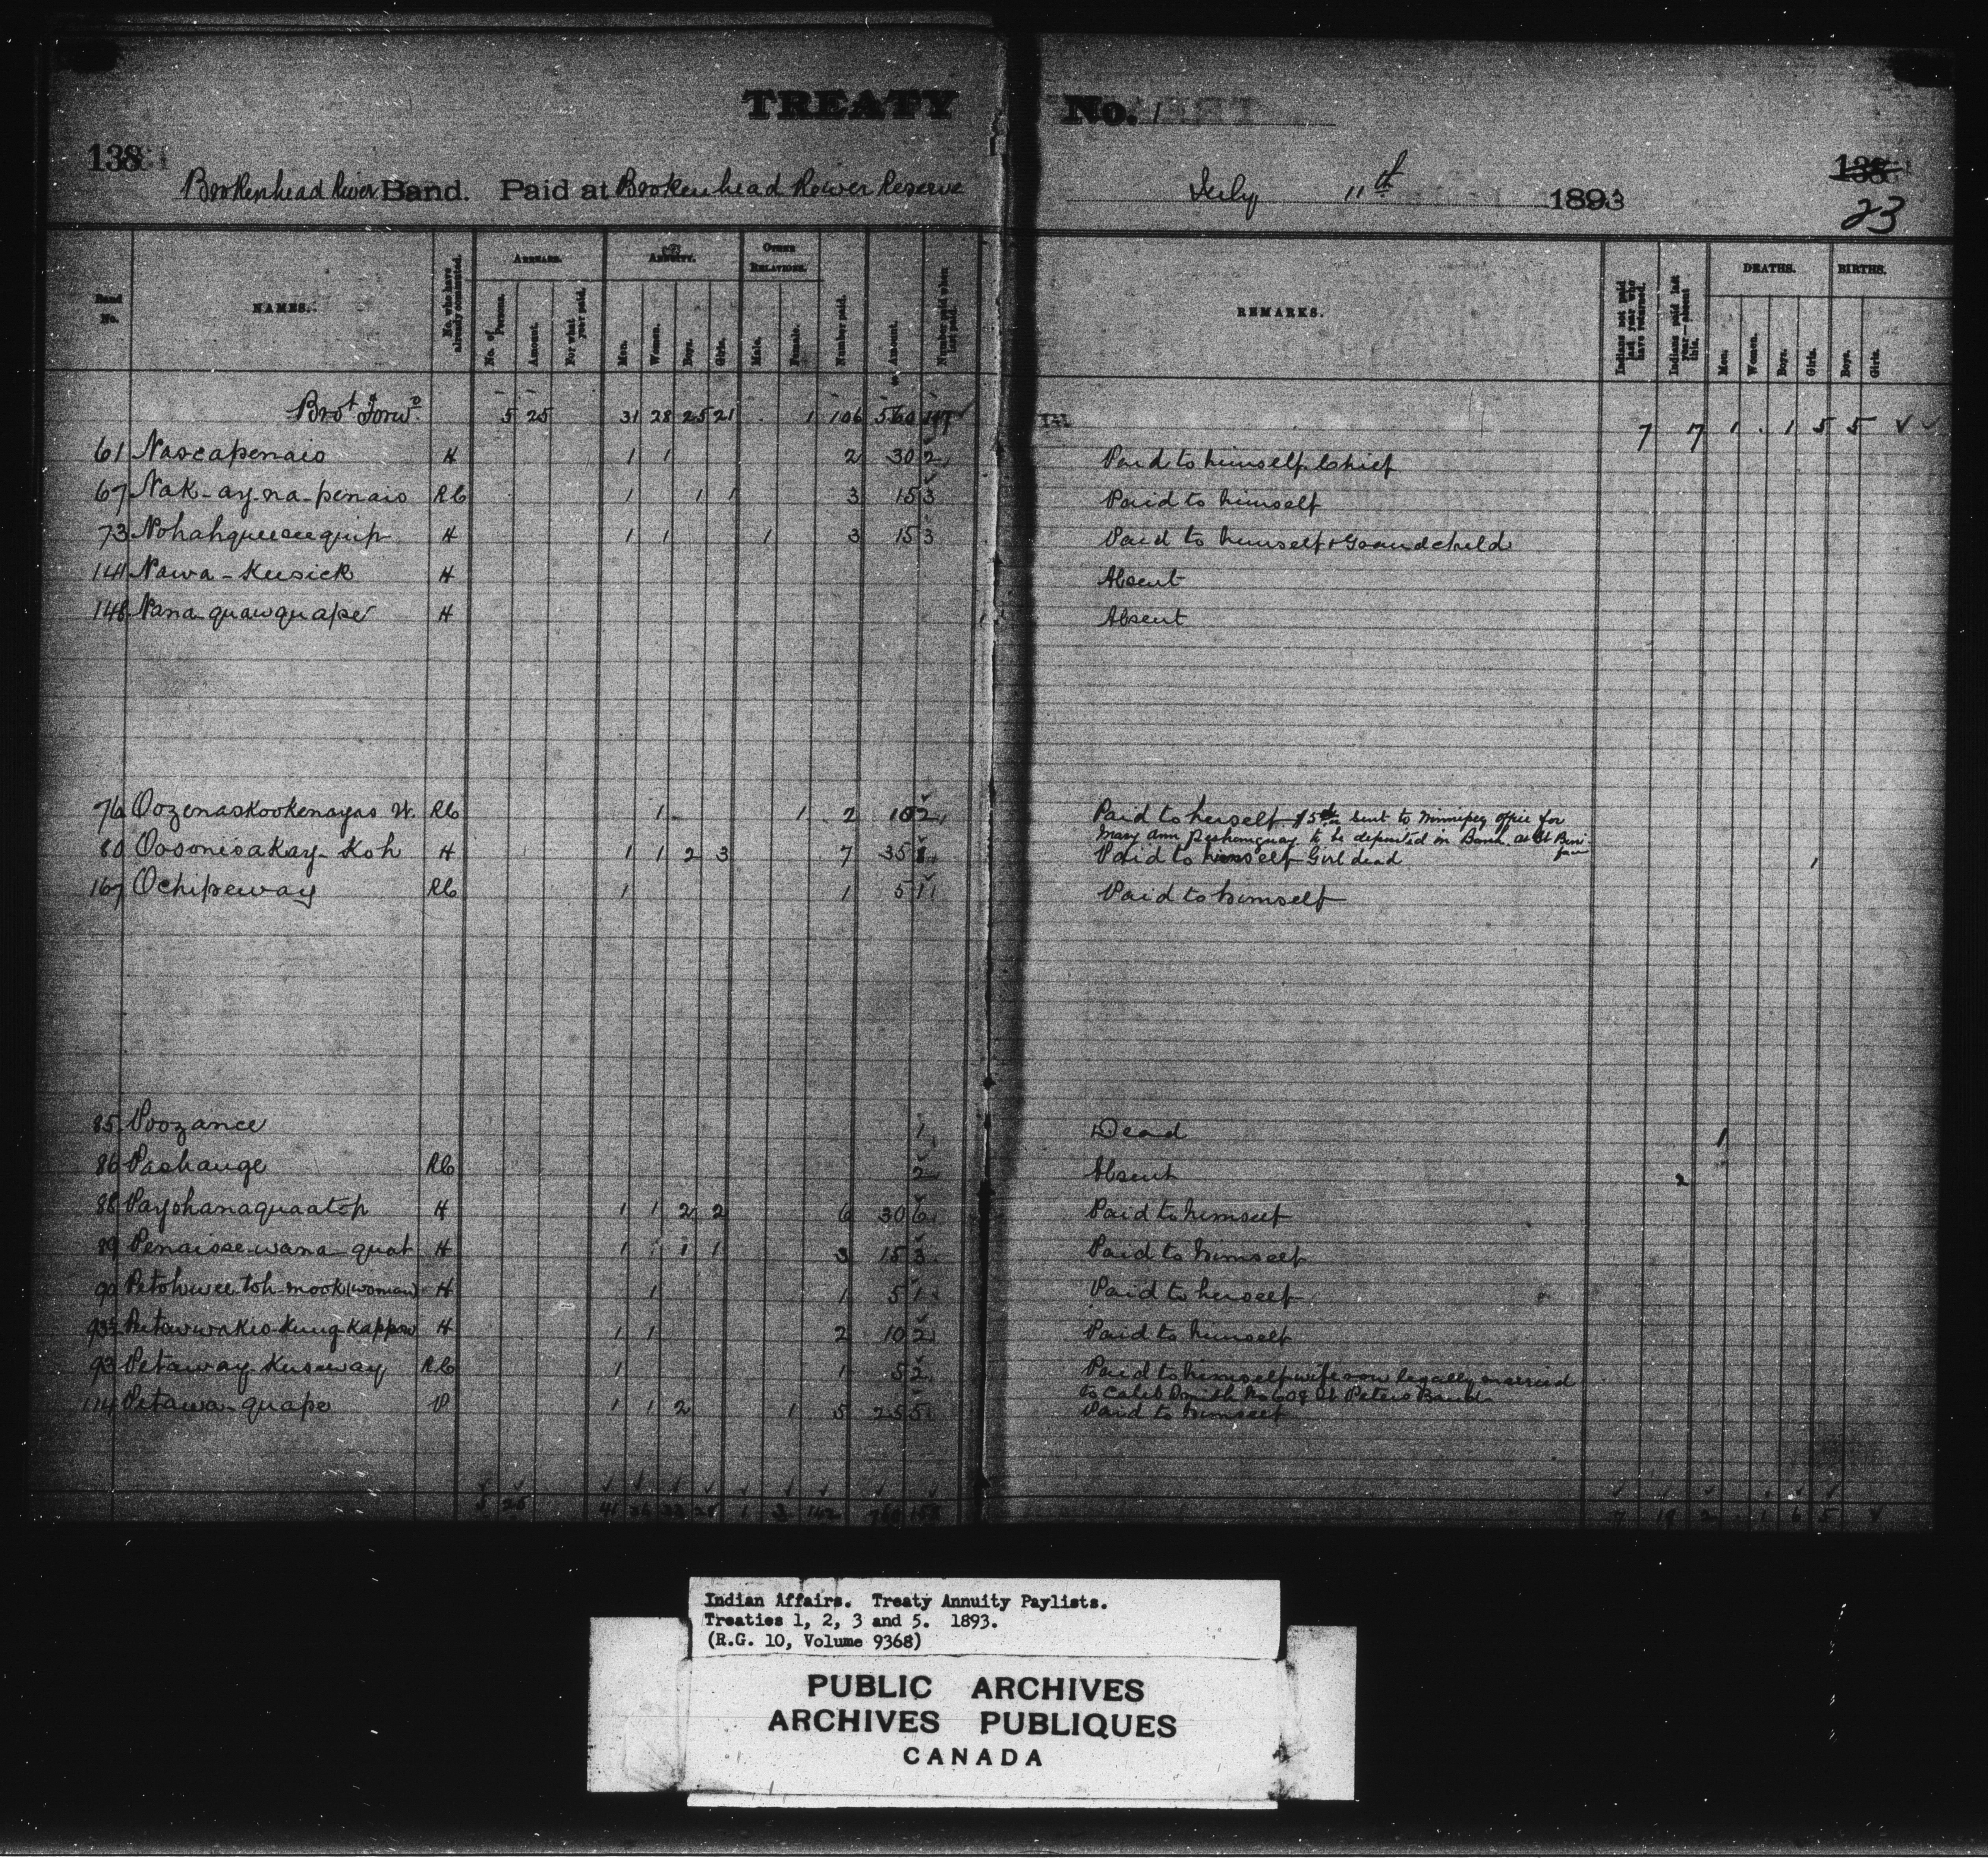 TREATY No. 1
138 138
23
Brokenhead River Band. Paid at Brokenhead River Reserve July 11th 1893
Band No. NAMES. No. who have already commuted. ARREARS. No. of Persons. Amount. For what year paid. ANNUITY. Men. Women. Boys. Girls. OTHER RELATIONS. Male. Female. Number paid. Amount. Number paid when last paid. REMARKS. Indians not paid last year who have returned. Indians paid last year—absent this. DEATHS. Men. Women. Boys. Girls. BIRTHS. Boys. Girls.
Brot Forwd 5 25 31 28 25 21 1 106 560 7 7 1 . 1 5 5
61 Nascapenais H 1 1 2 30 2 Paid to himself Chief
67 Nak-ay-na-penais RC 1 1 1 3 15 3 Paid to himself
73 Nohahqueeseequip H 1 1 1 3 15 3 Paid to himself & Grandchild
141 Nawa-Keesick H Absent
148 Nana-quawquape H Absent
76 Oozenaskookenayas W. RC 1 1 2 10 2 Paid to herself $5 sent to Winnipeg office for
Mary Ann to be deposited in Bank at St Boni
face
80 Oosonisakay-Koh H 1 1 2 3 7 35 8 Paid to himself Girl dead 1
167 Ochipeway RC 1 1 5 1 Paid to himself
85 Poozance 1 Dead 1
86 Pashauge RC 2 Absent 2
88 Payshanaquaatop H 1 1 2 2 6 30 6 Paid to himself
89 Penaisse-wana-quat H 1 1 1 3 15 3 Paid to himself
90 Petohwee-toh-mook (woman) H 1 1 5 1 Paid to herself
93½ Petawwakeo-Kung-Kappow H 1 1 2 10 2 Paid to himself
93 Petaway-Kuseway RC 1 1 5 2 Paid to himself wife now legally married
to Caleb Smith No 608 St Peters Band
114 Petawa-quape P 1 1 2 1 5 25 5 Paid to himself
5 25 41 36 33 28 1 3 142 760 7 19 2 1 6 5
Indian Affairs. Treaty Annuity Paylists.
Treaties 1, 2, 3 and 5. 1893.
(R.G. 10, Volume 9368)
PUBLIC ARCHIVES
ARCHIVES PUBLIQUES
CANADA